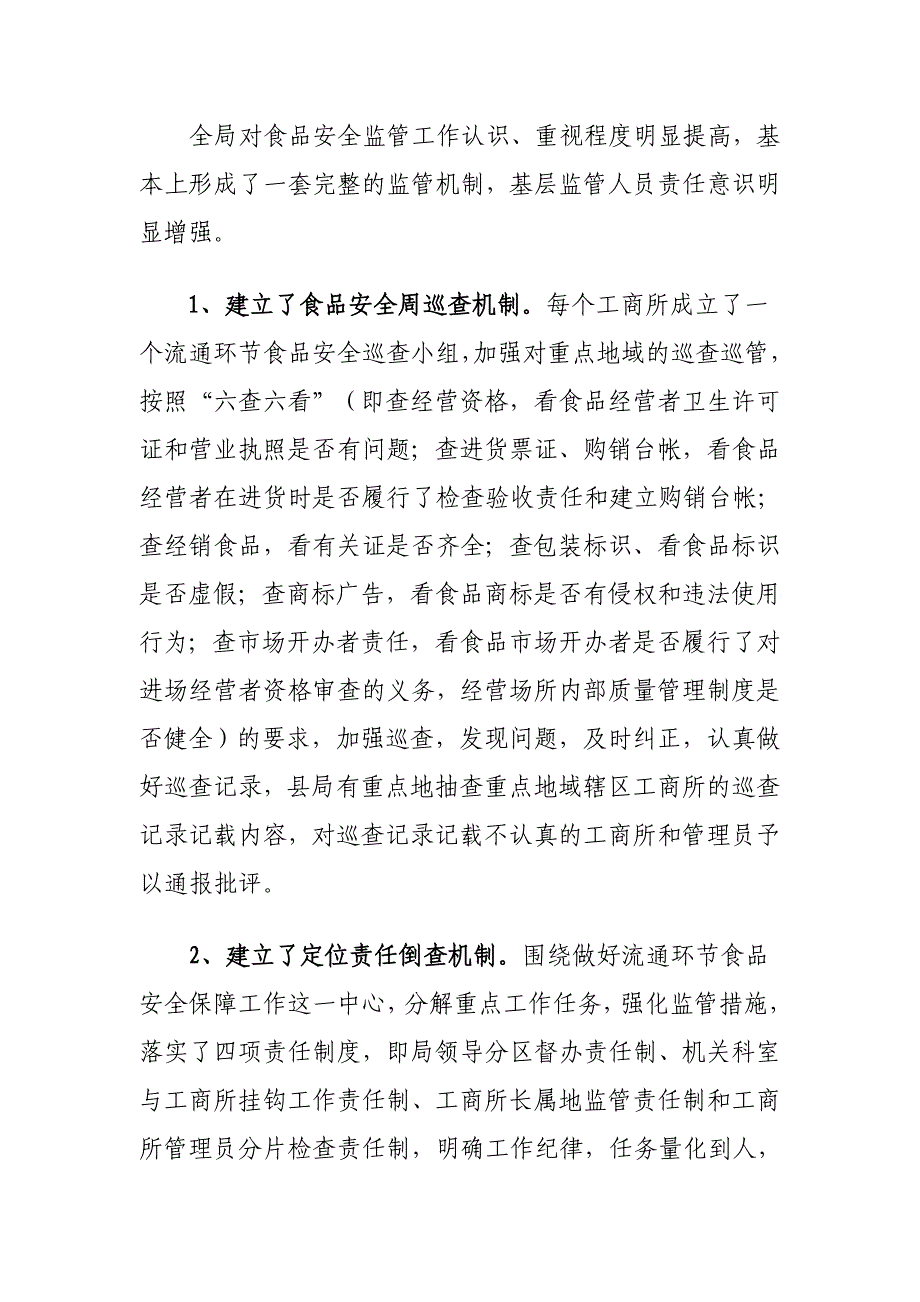 全局对食品安全监管工作认识、重视程度明显提高，基
本上形成了一套完整的监管机制，基层监管人员责任意识明
显增强。
1、建立了食品安全周巡查机制。每个工商所成立了一
个流通环节食品安全巡查小组，加强对重点地域的巡查巡管，
按照“六查六看”（即查经营资格，看食品经营者卫生许可
证和营业执照是否有问题；查进货票证、购销台帐，看食品
经营者在进货时是否履行了检查验收责任和建立购销台帐；
查经销食品，看有关证是否齐全；查包装标识、看食品标识
是否虚假；查商标广告，看食品商标是否有侵权和违法使用
行为；查市场开办者责任，看食品市场开办者是否履行了对
进场经营者资格审查的义务，经营场所内部质量管理制度是
否健全）的要求，加强巡查，发现问题，及时纠正，认真做
好巡查记录，县局有重点地抽查重点地域辖区工商所的巡查
记录记载内容，对巡查记录记载不认真的工商所和管理员予
以通报批评。
2、建立了定位责任倒查机制。围绕做好流通环节食品
安全保障工作这一中心，分解重点工作任务，强化监管措施，
落实了四项责任制度，即局领导分区督办责任制、机关科室
与工商所挂钩工作责任制、工商所长属地监管责任制和工商
所管理员分片检查责任制，明确工作纪律，任务量化到人，